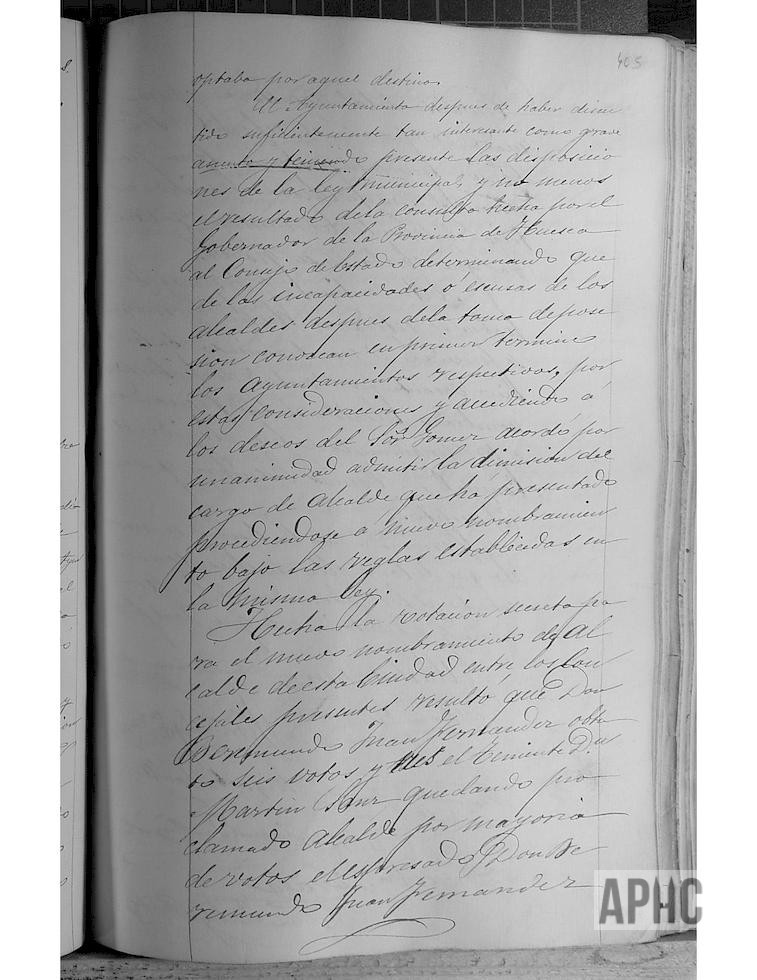 405
optaba por aquel destino.
El Ayuntamiento despues de haber discu
tido suficientemente tan interesante como grave
asunto y teniendo presente las disposicio
nes de la ley municipal, y no menos
el resultado dela consulta hecha por el
Gobernador de la Provincia de Huesca
al Consejo de Estado determinando que
de las incapacidades ó escusas de los
alcaldes despues dela toma de pose
sion conozcan en primer termino
los Ayuntamientos respectivos, por
estas consideraciones y accediendo á
los deseos del Sor. Gomez acordó por
unanimidad admitir la dimision del
cargo de Alcalde que ha presentado
procediendose á nuevo nombramien
to bajo las reglas establecidas en
la misma ley.
Hecha la votacion secreta pa
ra el nuevo nombramiento de Al
calde de esta Ciudad entre los Con
cejales presentes resultó que Don
Beremundo Juan Fernandez obtu
to seis votos y tres el Teniente D.
Martin Sanz quedando pro
clamado Alcalde por mayoria
de votos el espresado Don Be
remundo Juan Fernandez
APHC